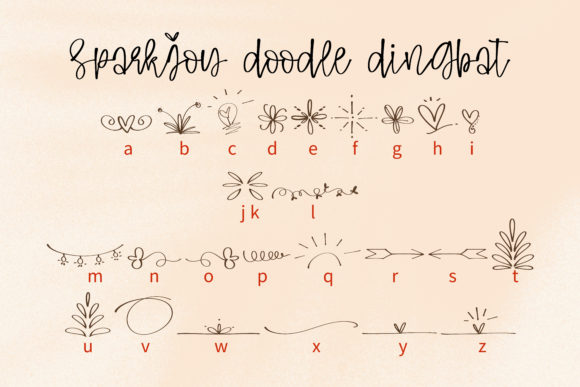 sparkjoy doodle dingbat
a b c d e f g h i
j k l
m n o p q r s t
u v w x y z